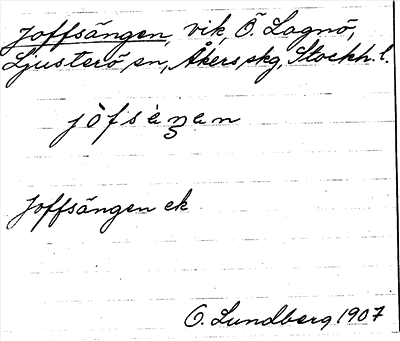 Joffsängen, vik, Ö. Lagnö,
Ljusterö sn, Åkers skg, Stockh. l.
jòfsäŋan
Joffsängen ek
O. Lundberg 1907